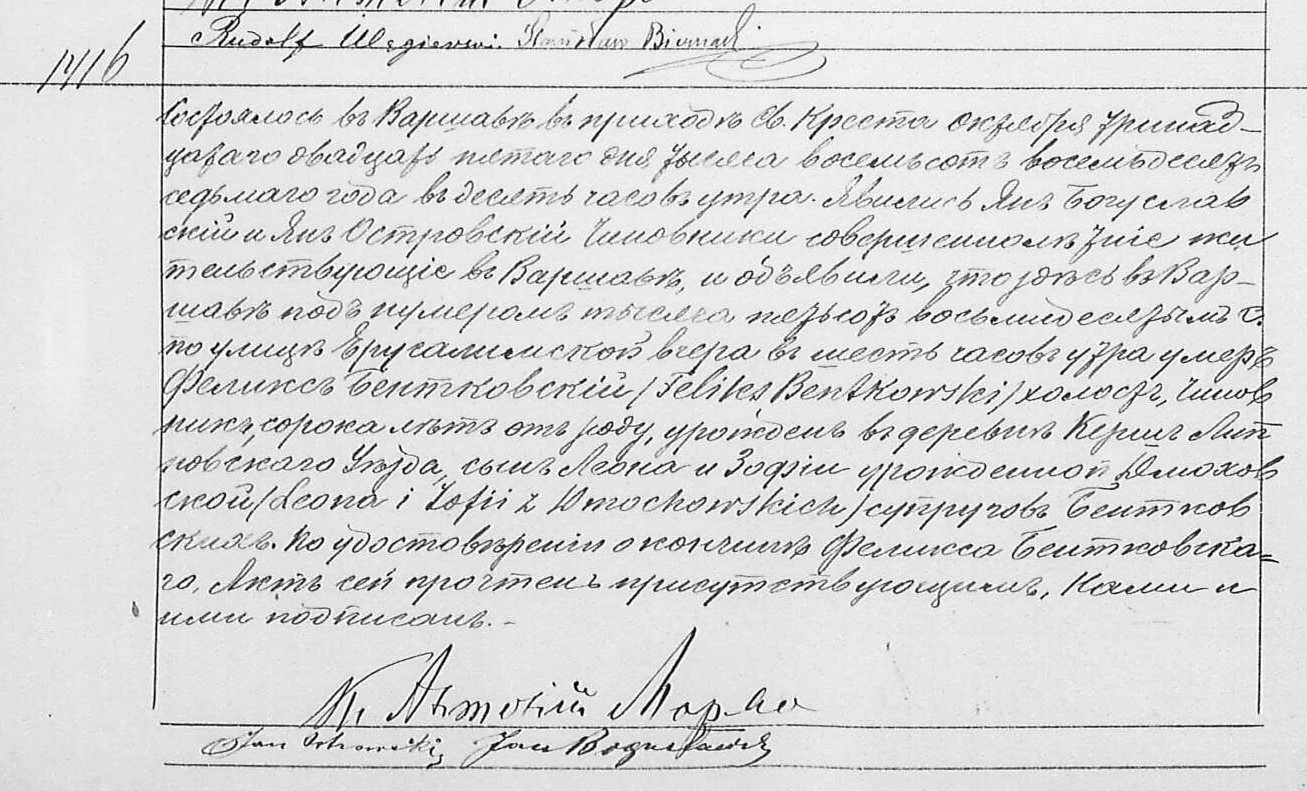 Rudolf Węgierski. Stanisław Biernacki
1416
Состоялось въ Варшавѣ въ приходѣ Св. Креста октября тринад-
цатаго двадцать пятаго дня тысяча восемьсотъ восемьдесятъ
седьмаго года въ десять часовъ утра. Явились Янъ Богуслав
скій и Янъ Островскій Чиновники совершеннолѣтніе жи
тельствующіе въ Варшавѣ, и объявили, что здѣсь въ Вар-
шавѣ подъ нумеромъ тысяча пятьсотъ восьмидесятымъ С.
по улицѣ Ерусалимской вчера въ шесть часовъ утра умеръ
Феликсъ Бентковскій /Feliks Bentkowski/ холостъ, Чинов
никъ, сорока лѣтъ отъ роду, урожденъ въ деревнѣ Керцъ Лип
новскаго Уѣзда, сынъ Леона и Зофіи урожденной Дмохов
ской /Leona i Zofii z Dmochowskich/ супруговъ Бентков
скихъ. По удостовѣреніи о кончинѣ Феликса Бентковска=
го, Актъ сей прочтенъ присутствующимъ, Нами и
ими подписанъ. -
Кс. Антоній
Jan Ostrowski, Jan Bogusławski